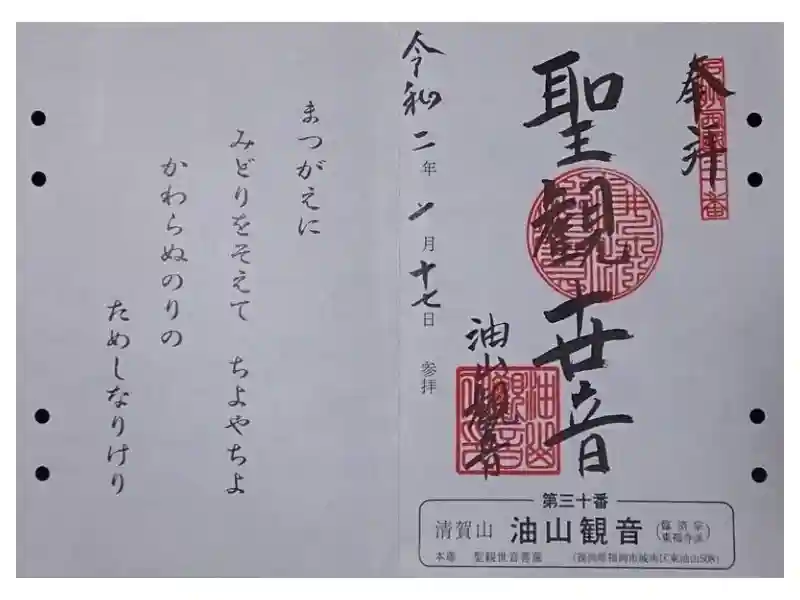 奉拝
聖観世音
油山観音
令和二年
月十七日 参拝
まつがえに
みどりをそえて ちよやちよ
かわらぬのりの
ためしなりけり
第三十番
清賀山 油山観音 (臨済宗東福寺派)
本尊 聖観世音菩薩 (福岡県福岡市城南区東油山508)